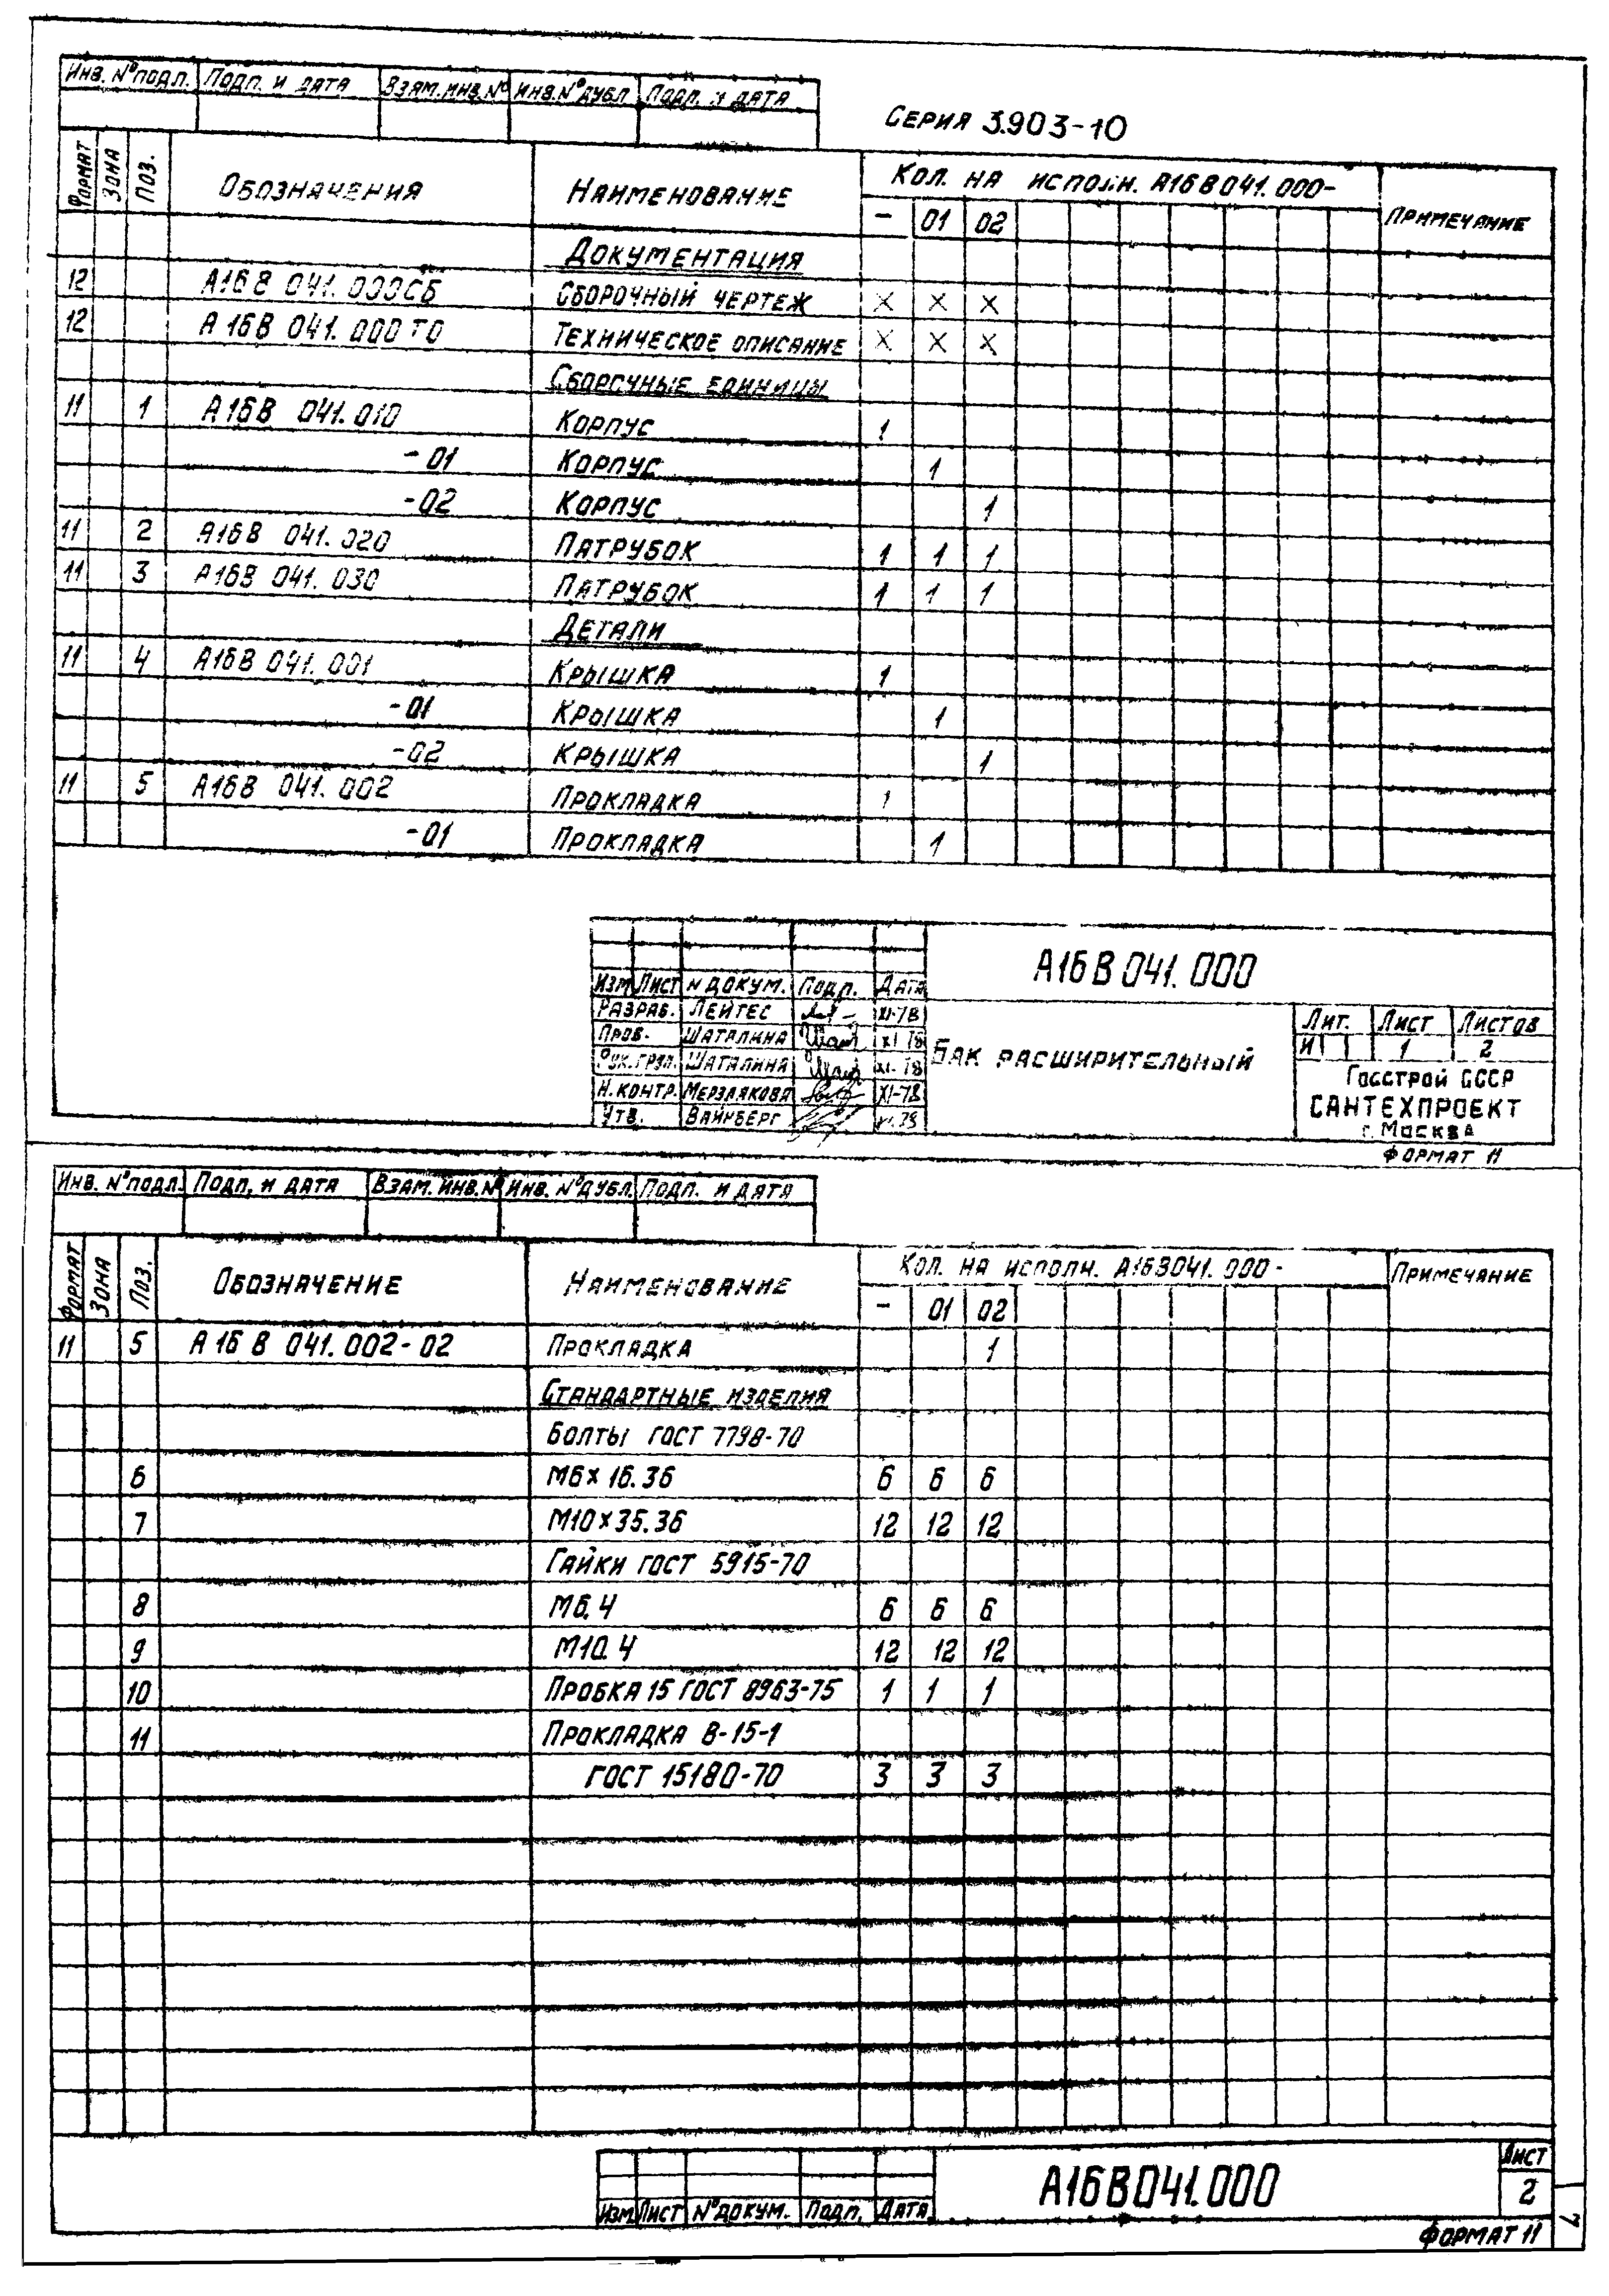 Инв. № подл. Подп. и дата Взам. инв. № Инв. № дубл Подп. и дата
Серия 3.903-10
Формат Зона Поз. Обозначения Наименование Кол. на исполн. А16В041.000- Примечание
- 01 02
Документация
12 А16В 041.000СБ Сборочный чертеж X X X
12 А16В 041.000ТО Техническое описание X X X
Сборочные единицы
11 1 А16В 041.010 Корпус 1
-01 Корпус 1
-02 Корпус 1
11 2 А16В 041.020 Патрубок 1 1 1
11 3 А16В 041.030 Патрубок 1 1 1
Детали
11 4 А16В 041.001 Крышка 1
-01 Крышка 1
-02 Крышка 1
11 5 А16В 041.002 Прокладка 1
-01 Прокладка 1
А16В041.000
Изм Лист N докум. Подп. Дата
Разраб. Лейтес XI-78
Пров. Шаталина XI-78
Рук.груп. Шаталина XI-78
Н.контр. Мерзлякова XI-78
Утв. Вайнберг
Бак расширительный
Лит. Лист Листов
И 1 2
Госстрой СССР
САНТЕХПРОЕКТ
г. Москва
Формат 11
Инв. № подл. Подп. и дата Взам. инв. № Инв. № дубл. Подп. и дата
Формат Зона Поз. Обозначение Наименование Кол. на исполн. А16В041.000- Примечание
- 01 02
11 5 А16В 041.002-02 Прокладка 1
Стандартные изделия
Болты ГОСТ 7798-70
6 М6×16.36 6 6 6
7 М10×35.36 12 12 12
Гайки ГОСТ 5915-70
8 М6.4 6 6 6
9 М10.4 12 12 12
10 Пробка 15 ГОСТ 8963-75 1 1 1
11 Прокладка В-15-1
ГОСТ 15180-70 3 3 3
Изм Лист № докум. Подп. Дата
А16В041.000
Лист
2
Формат 11